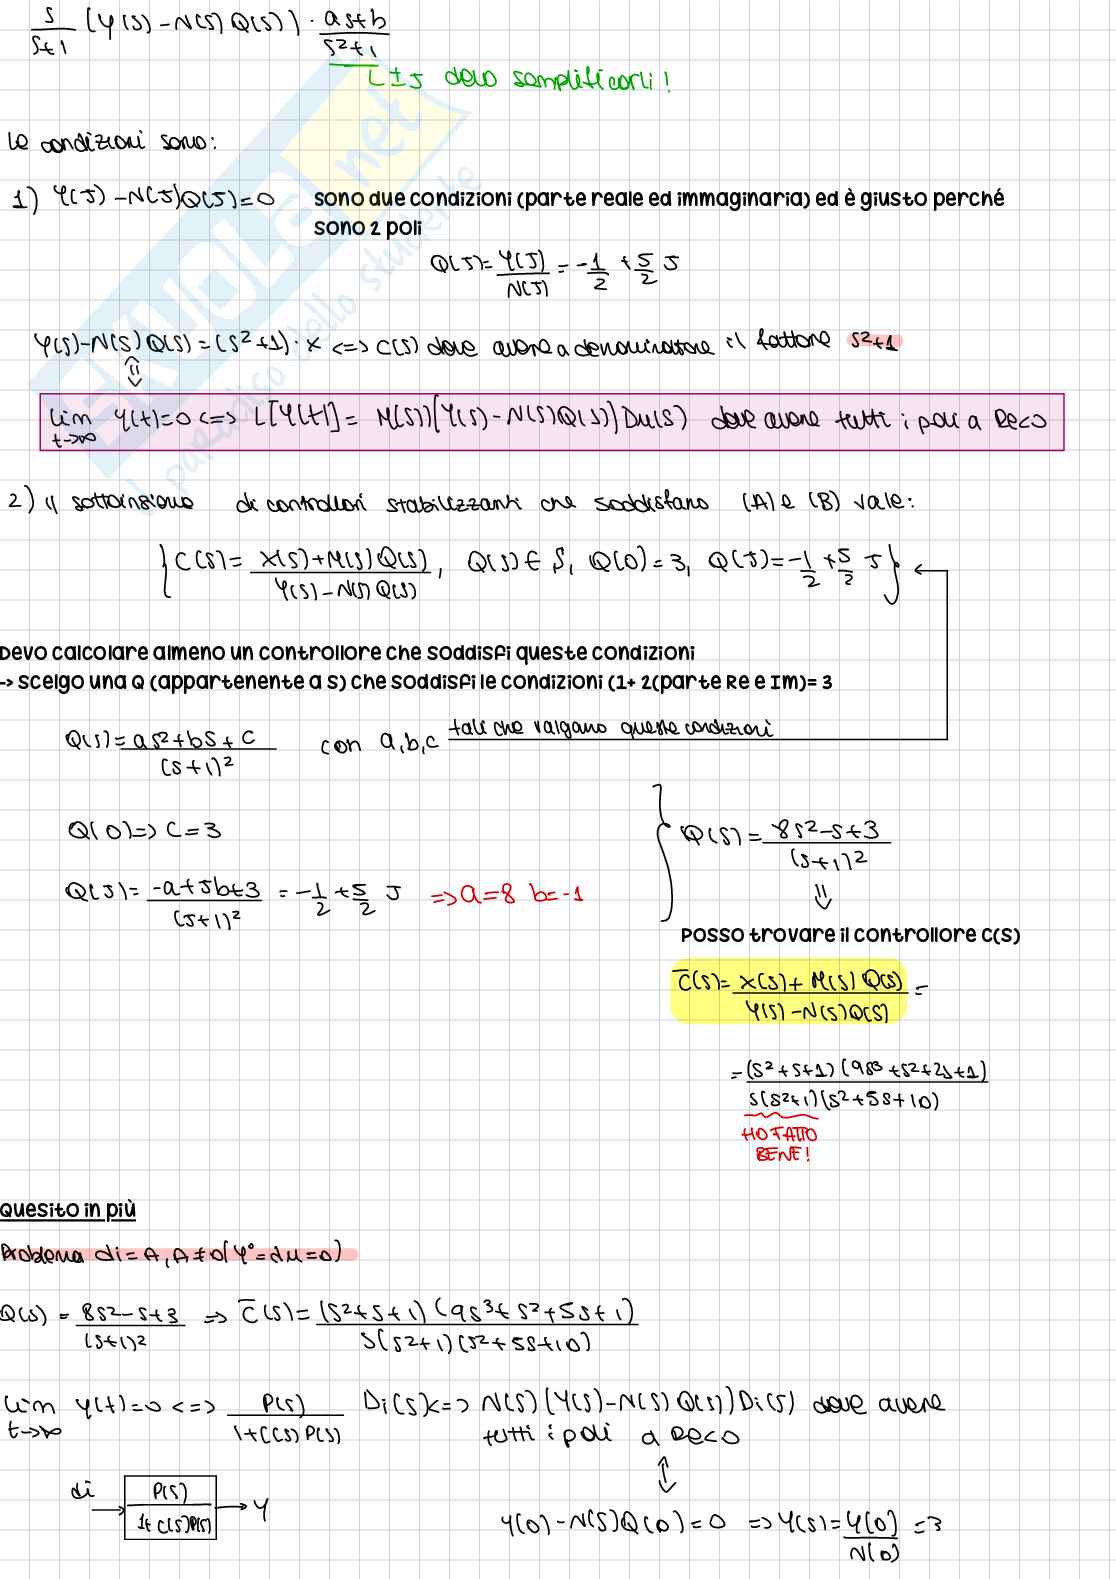 s/(s+1) (Y(s) - N(s) Q(s)) · (as+b)/(s²+1)
↳ ±J devo semplificarli!
Le condizioni sono:
1) Y(J) - N(J)Q(J) = 0 sono due condizioni (parte reale ed immaginaria) ed è giusto perché
sono 2 poli
Q(J) = Y(J)/N(J) = -1/2 + 5/2 J
Y(s) - N(s) Q(s) = (s²+1) · x <=> C(s) deve avere a denominatore il fattore s²+1
⇕
lim t→∞ Y(t) = 0 <=> L[Y(t)] = M(s)(Y(s) - N(s)Q(s))Du(s) deve avere tutti i poli a Re<0
2) Il sottoinsieme di controllori stabilizzanti che soddisfano (A) e (B) vale:
{ C(s) = (X(s) + M(s) Q(s))/(Y(s) - N(s) Q(s)), Q(s) ∈ S, Q(0) = 3, Q(J) = -1/2 + 5/2 J }
Devo calcolare almeno un controllore che soddisfi queste condizioni
-> scelgo una Q (appartenente a S) che soddisfi le condizioni (1+ 2(parte Re e Im)= 3
Q(s) = (as² + bs + c)/(s+1)² con a, b, c tali che valgano queste condizioni
Q(0) => c = 3
Q(s) = (8s² - s + 3)/(s+1)²
Q(J) = (-a + Jb + 3)/(J+1)² = -1/2 + 5/2 J => a = 8 b = -1
⇓
Posso trovare il controllore C(s)
C̄(s) = (X(s) + M(s) Q(s))/(Y(s) - N(s) Q(s)) =
= (s² + s + 1)(9s³ + s² + 2s + 1)/(s(s²+1)(s² + 5s + 10))
HO FATTO
BENE!
Quesito in più
Problema di = A, A ≠ 0 (Y° = du = 0)
Q(s) = (8s² - s + 3)/(s+1)² => C̄(s) = (s² + s + 1)(9s³ + s² + 5s + 1)/(s(s²+1)(s² + 5s + 10))
lim t→∞ Y(t) = 0 <=> P(s)/(1+C(s)P(s)) Di(s) <=> N(s)(Y(s) - N(s) Q(s))Di(s) deve avere
tutti i poli a Re<0
⇕
di → P(s)/(1+C(s)P(s)) → Y
Y(0) - N(s)Q(0) = 0 => Y(s) = Y(0)/N(0) = 3
SKUOLA.net
il paradiso dello studente